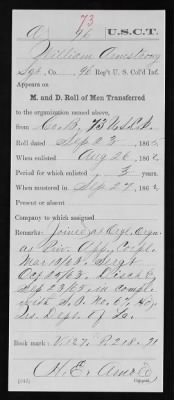 73
A | 96 | U.S.C.T.
William Armstrong
Sgt, Co. 96 Reg't U. S. Col'd Inf.
Appears on
M. and D. Roll of Men Transferred
to the organization named above,
from Co. B, 73 U.S.C.I.
Roll dated Sep 23, 1865
When enlisted Aug 26, 1862
Period for enlisted 3 years.
When mustered in Sep 27, 1862
Present or absent
Company to which assigned
Remarks: Joined at Orgl. Orgn.
as Priv. App. Corpl.
Mar 10/63. Sergt
Oct 24/63. Disch by
Sep 23/65 in compl
with S.O. No. 67, Hq.
Dept. of La.
Book mark: V. 127. P. 218. 71
H. E.
Copyist.